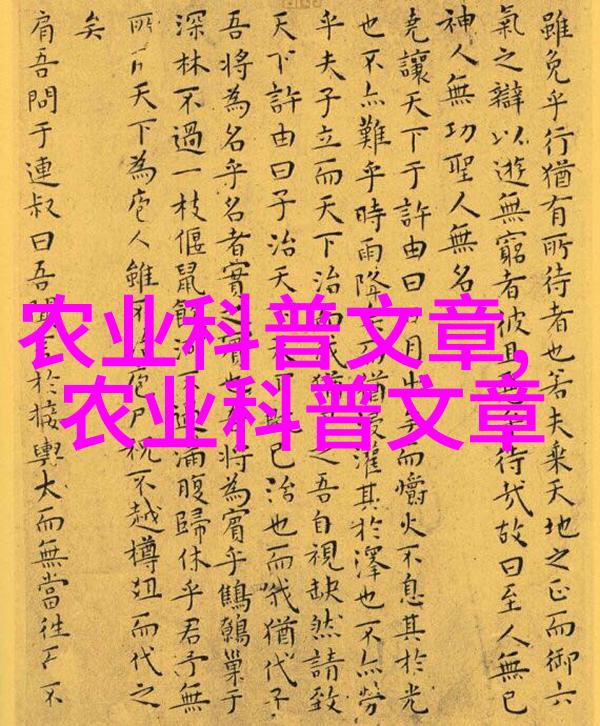 雖免乎行猶有所待者也若夫乘天地之正而御六
氣之辯以遊無窮者彼且乎待哉故曰至人無已
神人無功聖人無名
堯讓天下于許由曰月出而爝火不息其於光
也不亦難乎時雨降猶浸灌其於澤也不亦勞
乎夫子立而天下治而我猶之吾自視缺然請致
天下許由曰子治天下既已治也而我猶代子
吾將為名乎名者實之賓也吾將為賓乎鷦鷯巢于
深林不過一枝偃鼠飲河不過滿腹歸休乎君予無
所用天下為庖人雖不治庖尸祝不越樽俎而代之
矣
肩吾問于連叔曰吾聞言於接輿大而無當往而不
农业科普文章,
农业科普文章